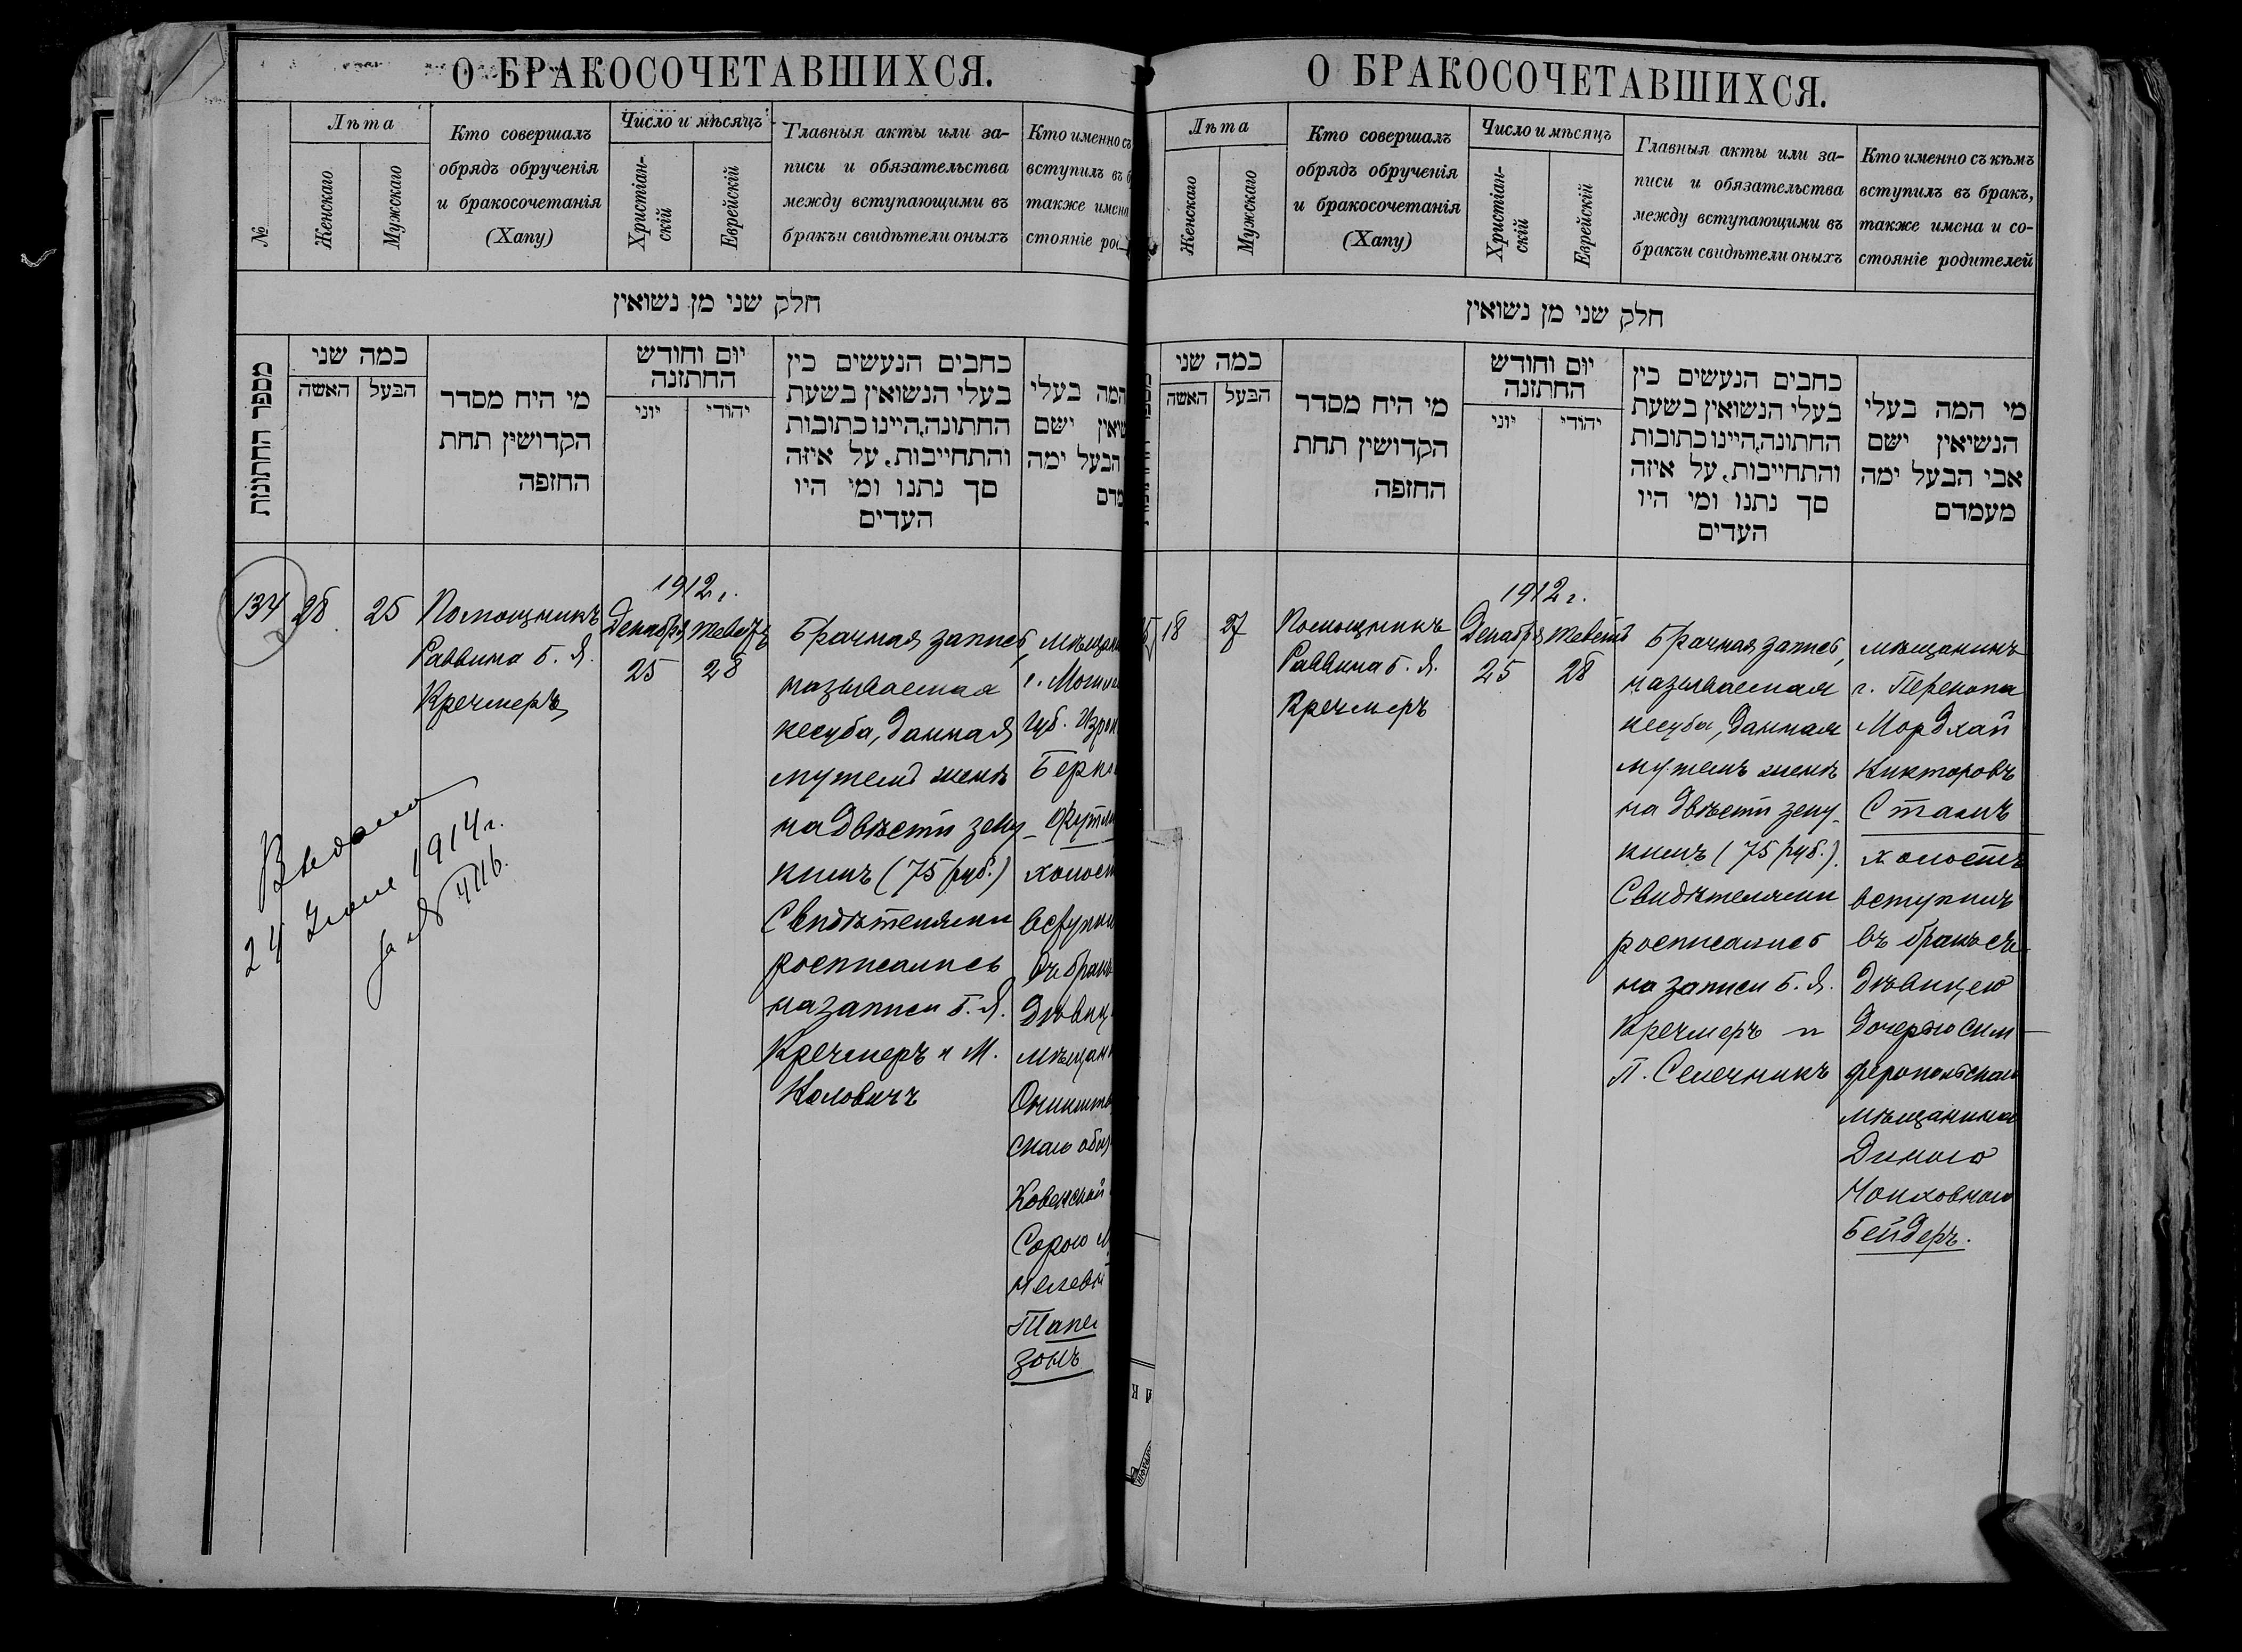 О БРАКОСОЧЕТАВШИХСЯ.
№
Лѣта
Женскаго
Мужскаго
Кто совершалъ
обрядъ обрученія
и бракосочетанія
(Хапу)
Число и мѣсяцъ
Христіан-
скій
Еврейскій
Главныя акты или за-
писи и обязательства
между вступающими въ
бракъи свидѣтели оныхъ
Кто именно съ
вступилъ въ б
также имена
стояніе ро
חלק שני מן נשואין
מספר החתונות
כמה שני
האשה
הבעל
מי היח מסדר
הקדושין תחת
החזפה
יום וחודש
החתזנה
יוני
יהודי
כחבים הנעשים כין
בעלי הנשואין בשעת
החתונה,היינו כתובות
והתחייבות, על איזה
סך נתנו ומי היו
העדים
המה בעלי
שיאין ישם
הבעל ימה
מדם
134
28
25
Помощникъ
Раввина Б. Я.
Кречмеръ
1912 г.
Декабря
25
Теветъ
28
Брачная запись,
называемая
кесуба, данная
мужемъ женѣ
на двѣсти зету-
кимъ (75 руб.)
Свидѣтелями
росписались
на записи Б. Я.
Кречмеръ и М.
мѣщани
г. Могил
губ. Изро
Берк
Футли
холост
вступил
въ бракъ
дѣвиц
мѣщан
скаго общ
Ковенской
Сорою
Тапе
зонъ
Выдано
24 Іюля 1914 г.
за №
О БРАКОСОЧЕТАВШИХСЯ.
Лѣта
Женскаго
Мужскаго
Кто совершалъ
обрядъ обрученія
и бракосочетанія
(Хапу)
Число и мѣсяцъ
Христіан-
скій
Еврейскій
Главныя акты или за-
писи и обязательства
между вступающими въ
бракъи свидѣтели оныхъ
Кто именно съ кѣмъ
вступилъ въ бракъ,
также имена и со-
стояніе родителей
חלק שני מן נשואין
כמה שני
האשה
הבעל
מי היח מסדר
הקדושין תחת
החזפה
יום וחודש
החתזנה
יוני
יהודי
כחבים הנעשים כין
בעלי הנשואין בשעת
החתונה,היינו כתובות
והתחייבות, על איזה
סך נתנו ומי היו
העדים
מי המה בעלי
הנשיאין ישם
אבי הבעל ימה
מעמדם
18
27
Помощникъ
Раввина Б. Я.
Кречмеръ
1912 г.
Декабря
25
Теветъ
28
Брачная запись,
называемая
кесуба, данная
мужемъ женѣ
на двѣсти зету-
кимъ (75 руб.).
Свидѣтелями
росписались
на записи Б. Я.
Кречмеръ и
П. Селечникъ
мѣщанинъ
г. Перекопа
Мордхай
Никторовъ
Сталь
холостъ
вступилъ
въ бракъ съ
дѣвицею
дочерью Сим-
феропольскаго
мѣщанина
Диною
Бейдеръ.